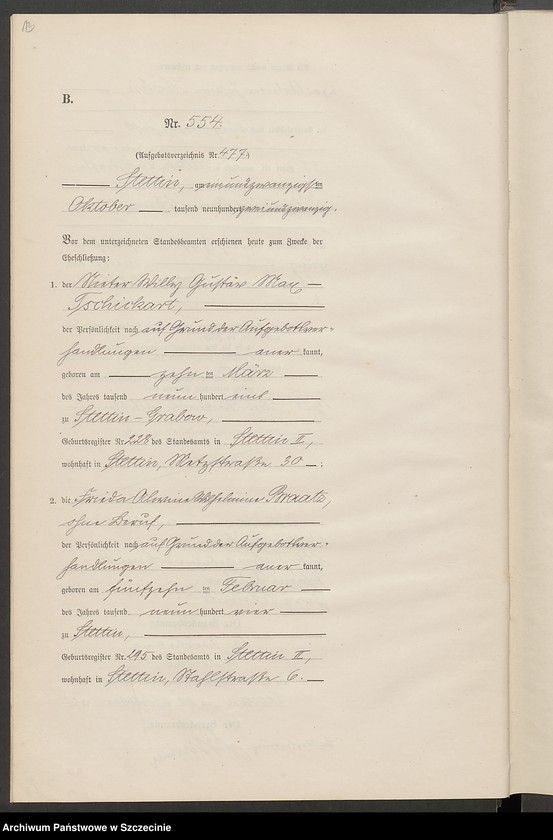 B.
Nr. 554.
(Aufgebotsverzeichnis Nr. 477.)
Stettin, am neunundzwanzigsten
Oktober tausend neunhundert zweiundzwanzig.
Vor dem unterzeichneten Standesbeamten erschienen heute zum Zwecke der
Eheschließung:
1. der Nieter Willy Gustav Max
Tschickart,
der Persönlichkeit nach auf Grund der Aufgebotsver-
handlungen anerkannt,
geboren am zehnten März
des Jahres tausend neunhundert eins
zu Stettin-Grabow,
Geburtsregister Nr. 228 des Standesamts in Stettin II,
wohnhaft in Stettin, Metzstraße 30;
2. die Frieda Alwine Wilhelmine Braatz,
ohne Beruf,
der Persönlichkeit nach auf Grund der Aufgebotsver-
handlungen anerkannt,
geboren am fünfzehnten Februar
des Jahres tausend neunhundert vier
zu Stettin,
Geburtsregister Nr. 295 des Standesamts in Stettin II,
wohnhaft in Stettin, Stahlstraße 6.
Archiwum Państwowe w Szczecinie